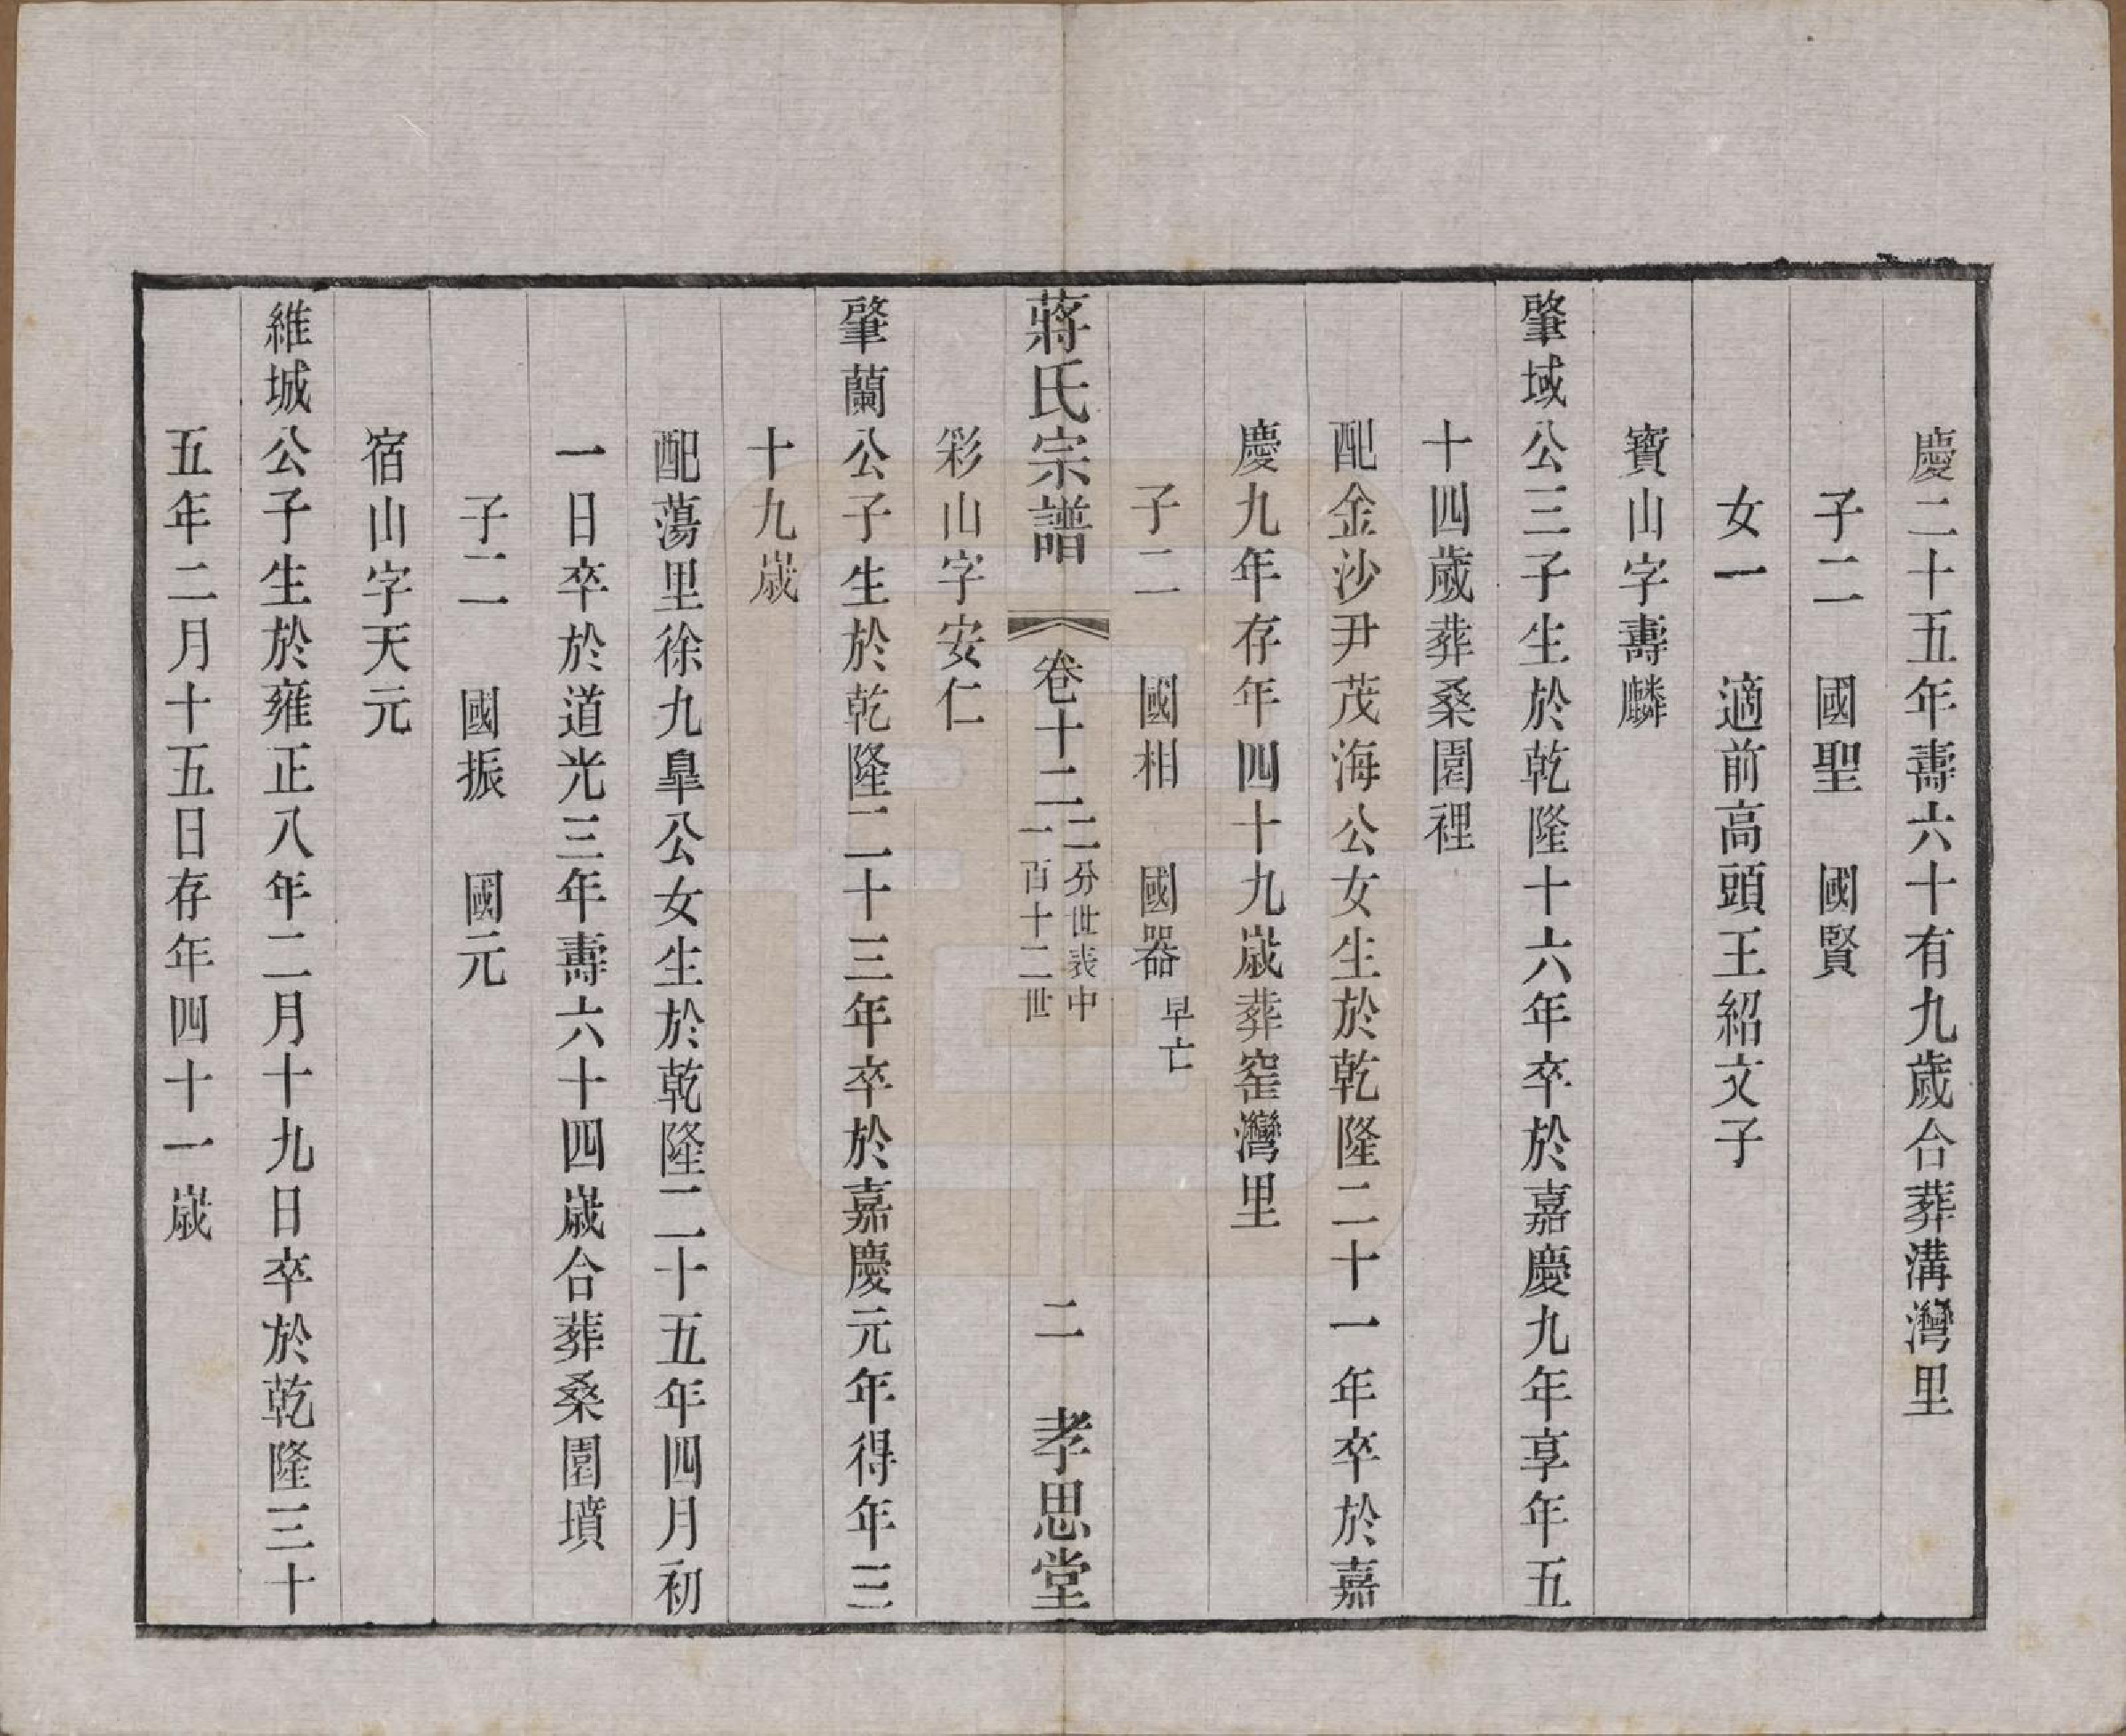 慶二十五年壽六十有九歲合葬溝灣里
子二　國聖　國賢
女一　適前高頭王紹文子
寶山字壽麟
肇域公三子生於乾隆十六年卒於嘉慶九年享年五
十四歲葬桑園裡
配金沙尹茂海公女生於乾隆二十一年卒於嘉
慶九年存年四十九歲葬窑灣里
子二　國相　國器早亡
彩山字安仁
蔣氏宗譜
卷十二
二分世表中
一百十二世
二
孝思堂
肇蘭公子生於乾隆二十三年卒於嘉慶元年得年三
十九歲
配蕩里徐九臯公女生於乾隆二十五年四月初
一日卒於道光三年壽六十四歲合葬桑園墳
子二　國振　國元
宿山字天元
維城公子生於雍正八年二月十九日卒於乾隆三十
五年二月十五日存年四十一歲